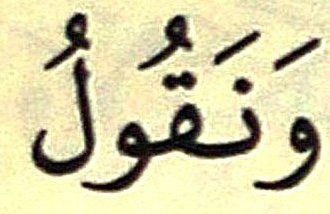 وَنَقُولُ